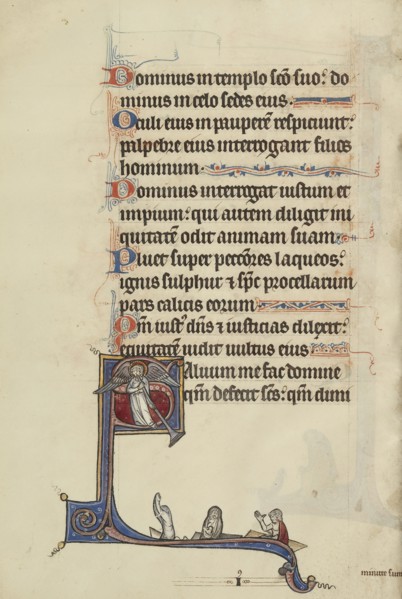 Dominus in templo sco suo: do
minus in celo sedes eius.
Oculi eius in pauperē respiciunt:
palpebre eius interrogant filios
hominum.
Dominus interrogat iustum et
impium: qui autem diligit ini
quitatem odit animam suam.
Pluet super peccōres laqueos:
ignis sulphur ⁊ spc procellarum
pars calicis eorum.
Qm iust' dn̄s ⁊ iusticias dilexit:
equitatē uidit uultus eius.
Saluum me fac domine
qm̄ defecit scs: qm̄ dimi
minute sunt